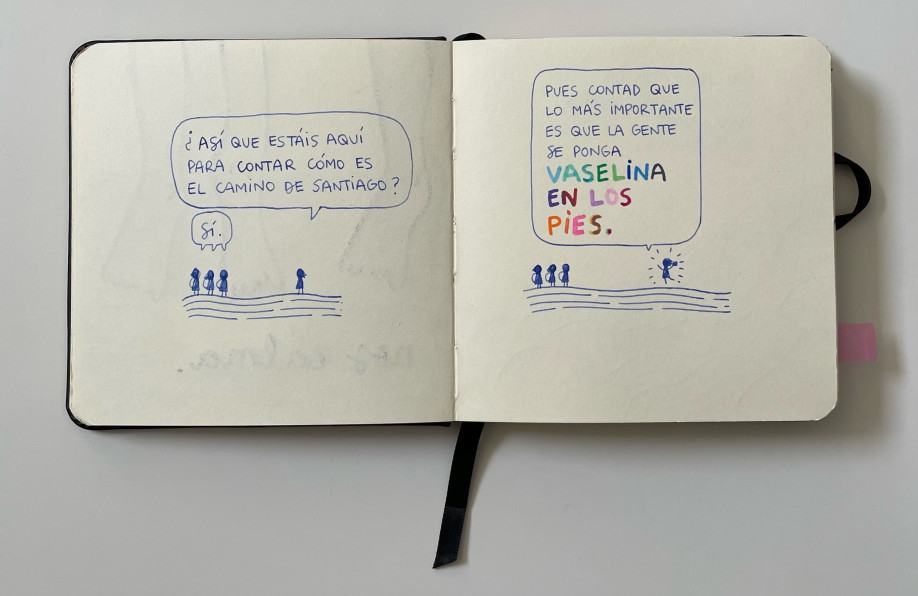 ¿ASÍ QUE ESTÁIS AQUÍ
PARA CONTAR CÓMO ES
EL CAMINO DE SANTIAGO?
SÍ.
PUES CONTAD QUE
LO MÁS IMPORTANTE
ES QUE LA GENTE
SE PONGA
VASELINA
EN LOS
PIES.